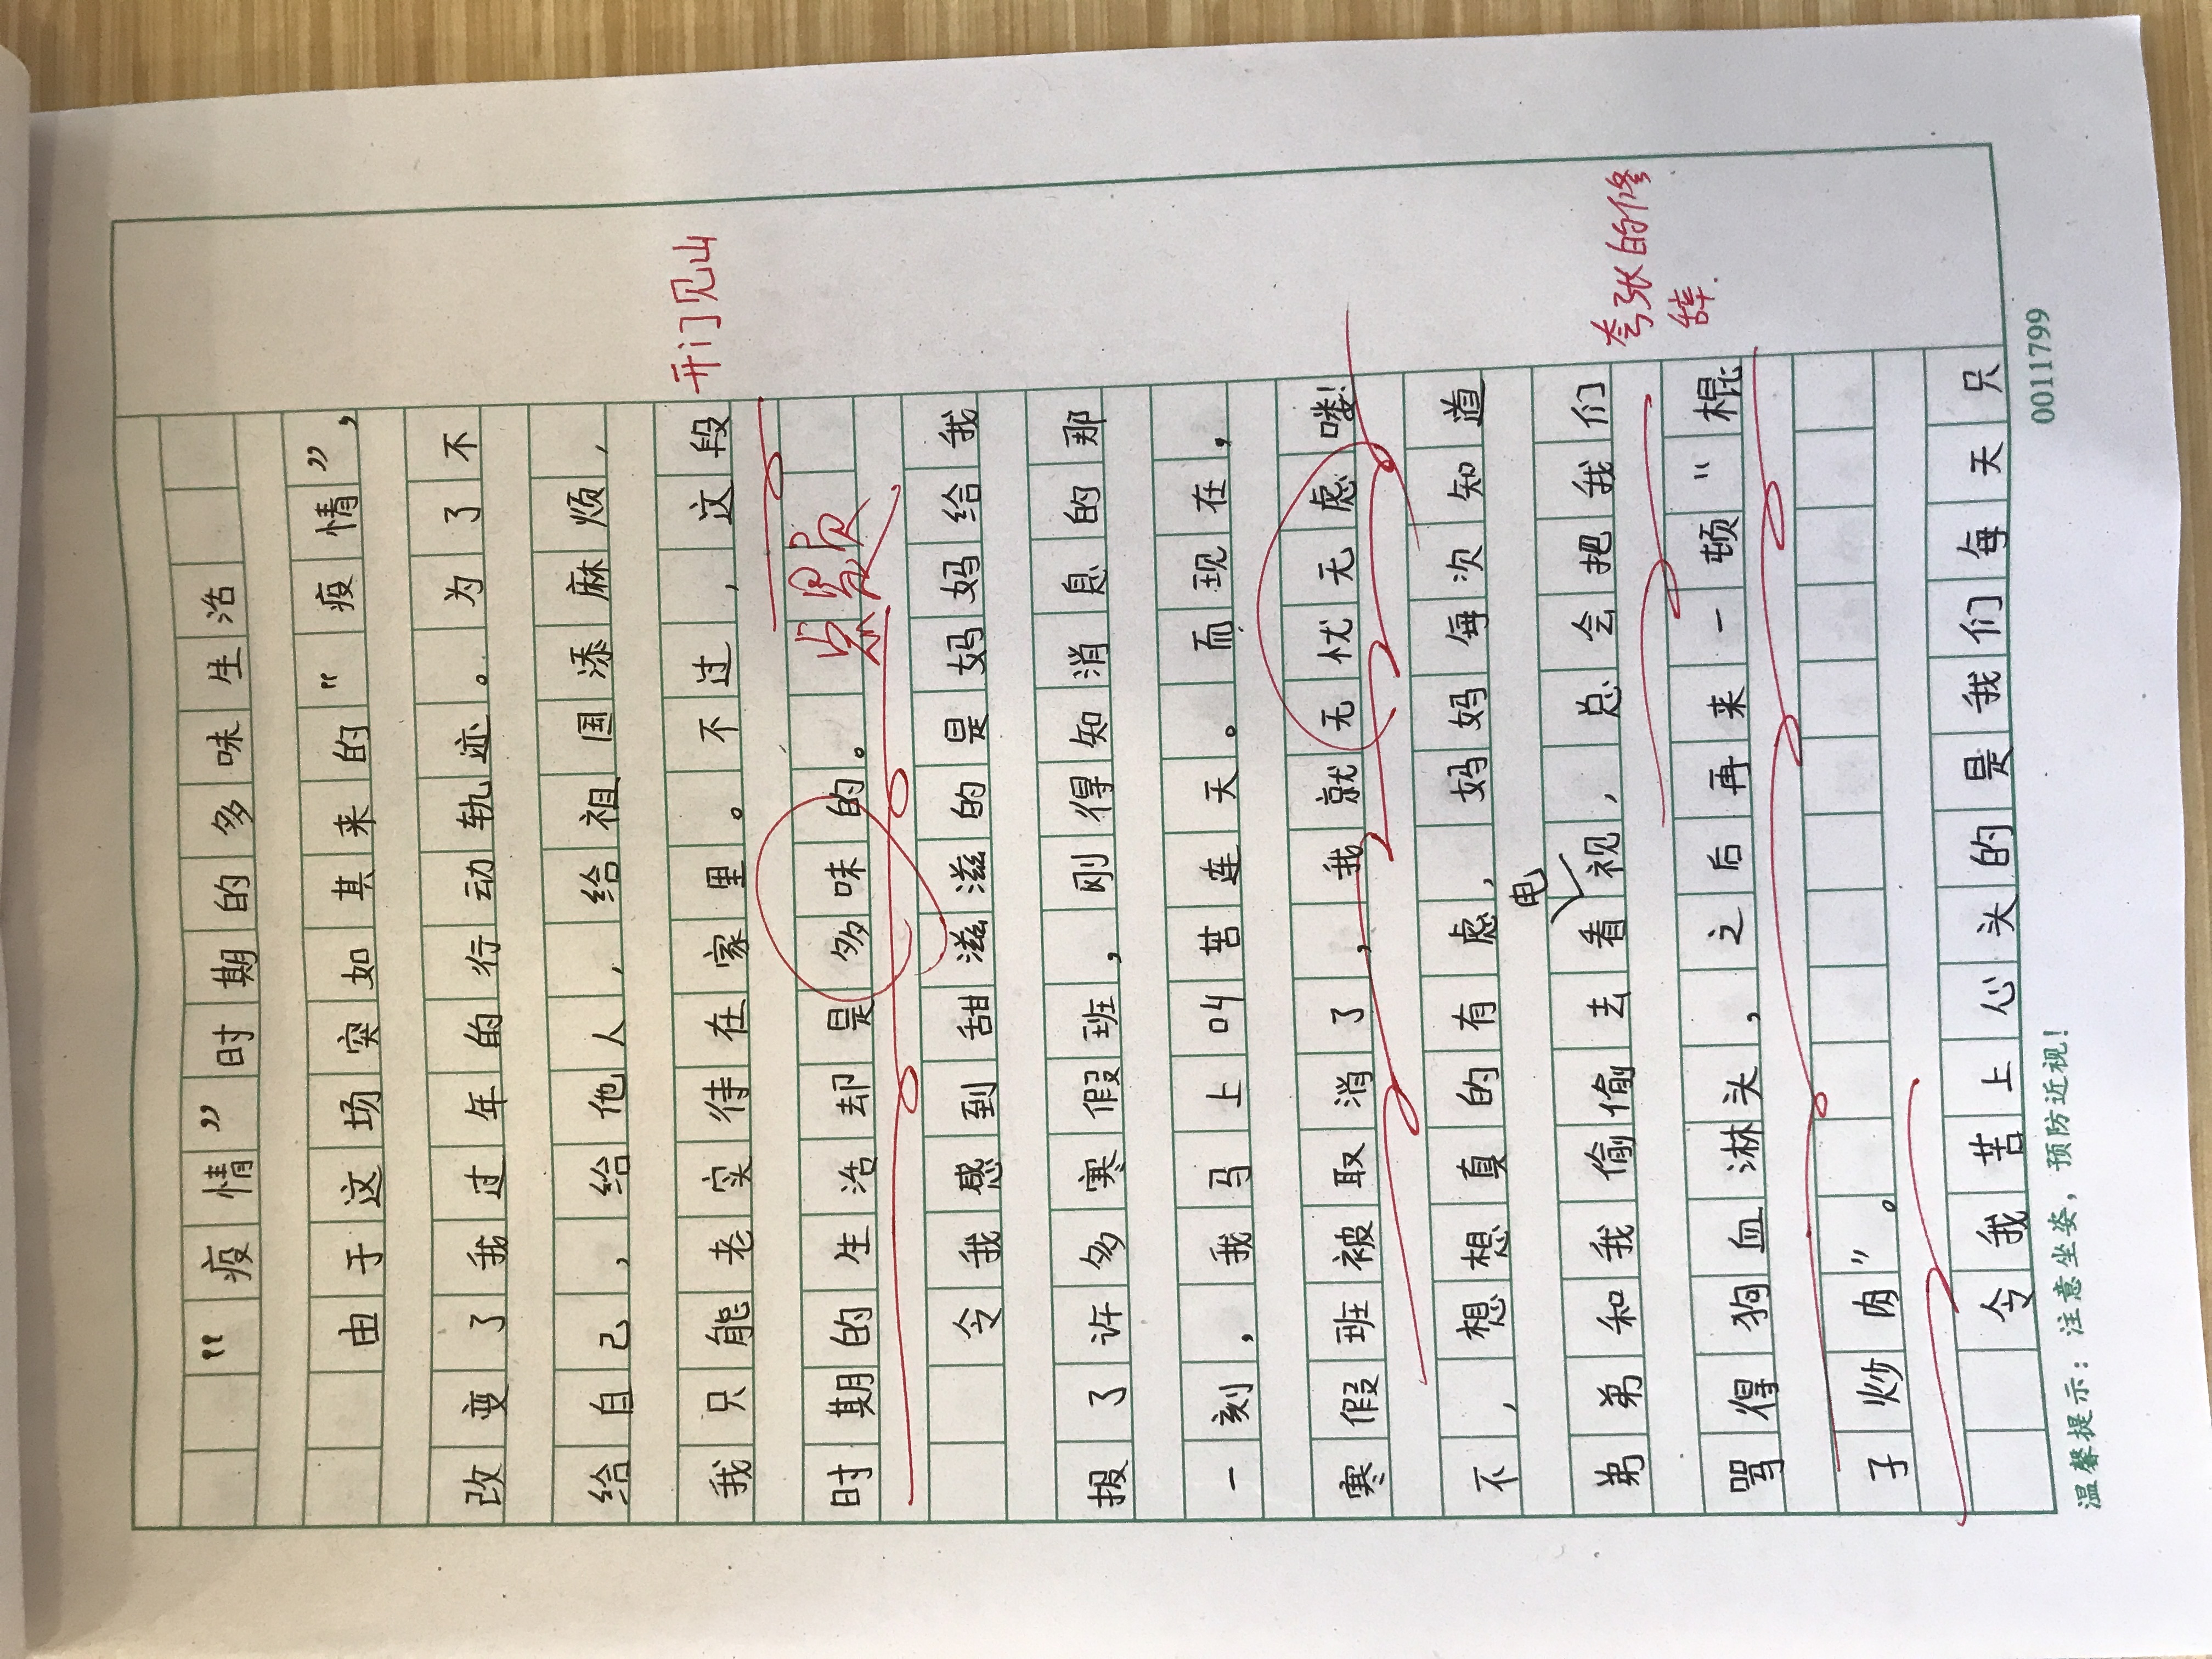 “疫情”时期的多味生活
由于这场突如其来的“疫情”，
改变了我过年的行动轨迹。为了不
给自己，给他人，给祖国添麻烦，
我只能老实待在家里。不过，这段
开门见山
时期的生活却是多味的。
点题
令我感到甜滋滋的是妈妈给我
报了许多寒假班，刚得知消息的那
一刻，我马上叫苦连天。而现在，
寒假班被取消了，我就无忧无虑喽!
不，想想真的有虑，妈妈每次知道
弟弟和我偷偷去看电视，总会把我们
夸张的修
辞.
骂得狗血淋头，之后再来一顿“棍
子炒肉”。
令我苦上心头的是我们每天只
温馨提示：注意坐姿，预防近视！
0011799